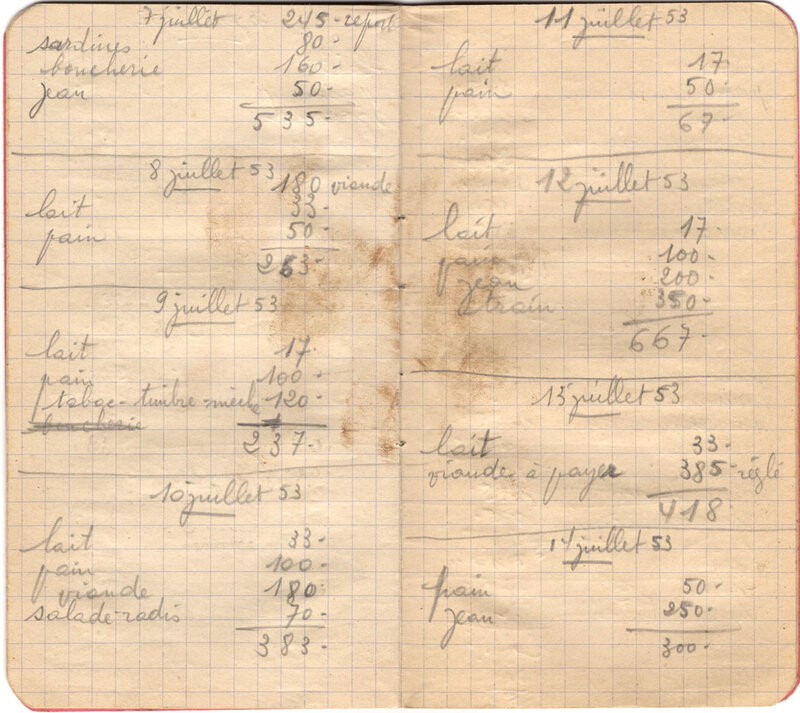 7 juillet 245- report
sardines 80-
boucherie 160-
jean 50-
535-
8 juillet 53
180 viande
lait 33-
pain 50-
263-
9 juillet 53
lait 17-
pain 100-
tabac-timbre-mèche 120-
boucherie
237-
10 juillet 53
lait 33-
pain 100-
viande 180-
salade-radis 70-
383-
11 juillet 53
lait 17-
pain 50-
67-
12 juillet 53
lait 17-
pain 100-
jean 200-
train 350-
667-
13 juillet 53
lait 33-
viande à payer 385- réglé
418-
14 juillet 53
pain 50-
jean 250-
300-